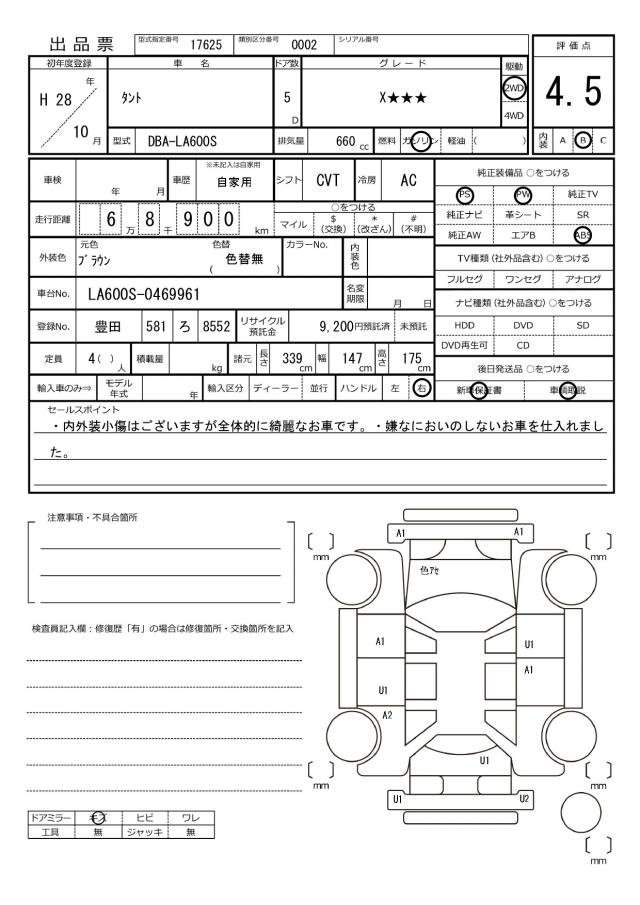 出品票 型式指定番号 17625 類別区分番号 0002 シリアル番号
評価点
4.5
内装 A B C
初年度登録 車名 ドア数 グレード 駆動
H 28 年 10 月 ﾀﾝﾄ 5 D X★★★ 2WD 4WD
型式 DBA-LA600S 排気量 660 cc 燃料 ガソリン 軽油 ( )
車検 年 月 車歴 ※未記入は自家用 自家用 シフト CVT 冷房 AC
走行距離 6 万 8 千 9 0 0 km
○をつける
マイル $(交換) *(改ざん) #(不明)
外装色 元色 ﾌﾞﾗｳﾝ 色替 ( 色替無 ) カラーNo. 内装色
車台No. LA600S-0469961 名変期限 月 日
登録No. 豊田 581 ろ 8552 リサイクル預託金 9,200円預託済 未預託
定員 4( ) 人 積載量 kg 諸元 長さ 339 cm 幅 147 cm 高さ 175 cm
輸入車のみ⇒ モデル年式 年 輸入区分 ディーラー 並行 ハンドル 左 右
純正装備品 ○をつける
PS PW 純正TV
純正ナビ 革シート SR
純正AW エアB ABS
TV種類(社外品含む)○をつける
フルセグ ワンセグ アナログ
ナビ種類(社外品含む)○をつける
HDD DVD SD
DVD再生可 CD
後日発送品 ○をつける
新車保証書 車輌取説
セールスポイント
・内外装小傷はございますが全体的に綺麗なお車です。・嫌なにおいのしないお車を仕入れまし
た。
注意事項・不具合箇所
検査員記入欄：修復歴「有」の場合は修復箇所・交換箇所を記入
A1 A1
mm mm
色ｱｾ
A1 U1
A1
U1
A2
U1
mm mm
U1 U2
mm
ドアミラー キズ ヒビ ワレ
工具 無 ジャッキ 無